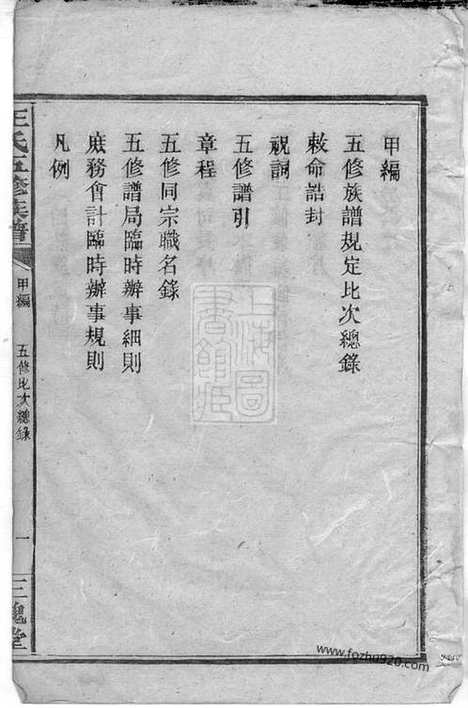 甲編
五修族譜規定比次總錄
敕命誥封
祝詞
五修譜引
章程
五修同宗職名錄
五修譜局臨時辦事細則
庶務會計臨時辦事規則
凡例
王氏五修族譜
甲編
五修比次總錄
一
三槐堂
上海圖書館藏
www.fozhu920.com